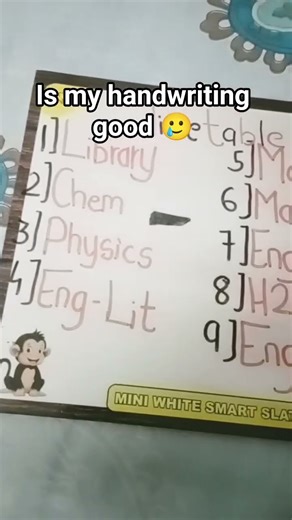 Is my handwriting
good 🥲
etable
1] Library
2] Chem
3] Physics
4] Eng-Lit
5] Ma
6] Ma
7] Eng
8] H2
9] Eng
MINI WHITE SMART SLAT